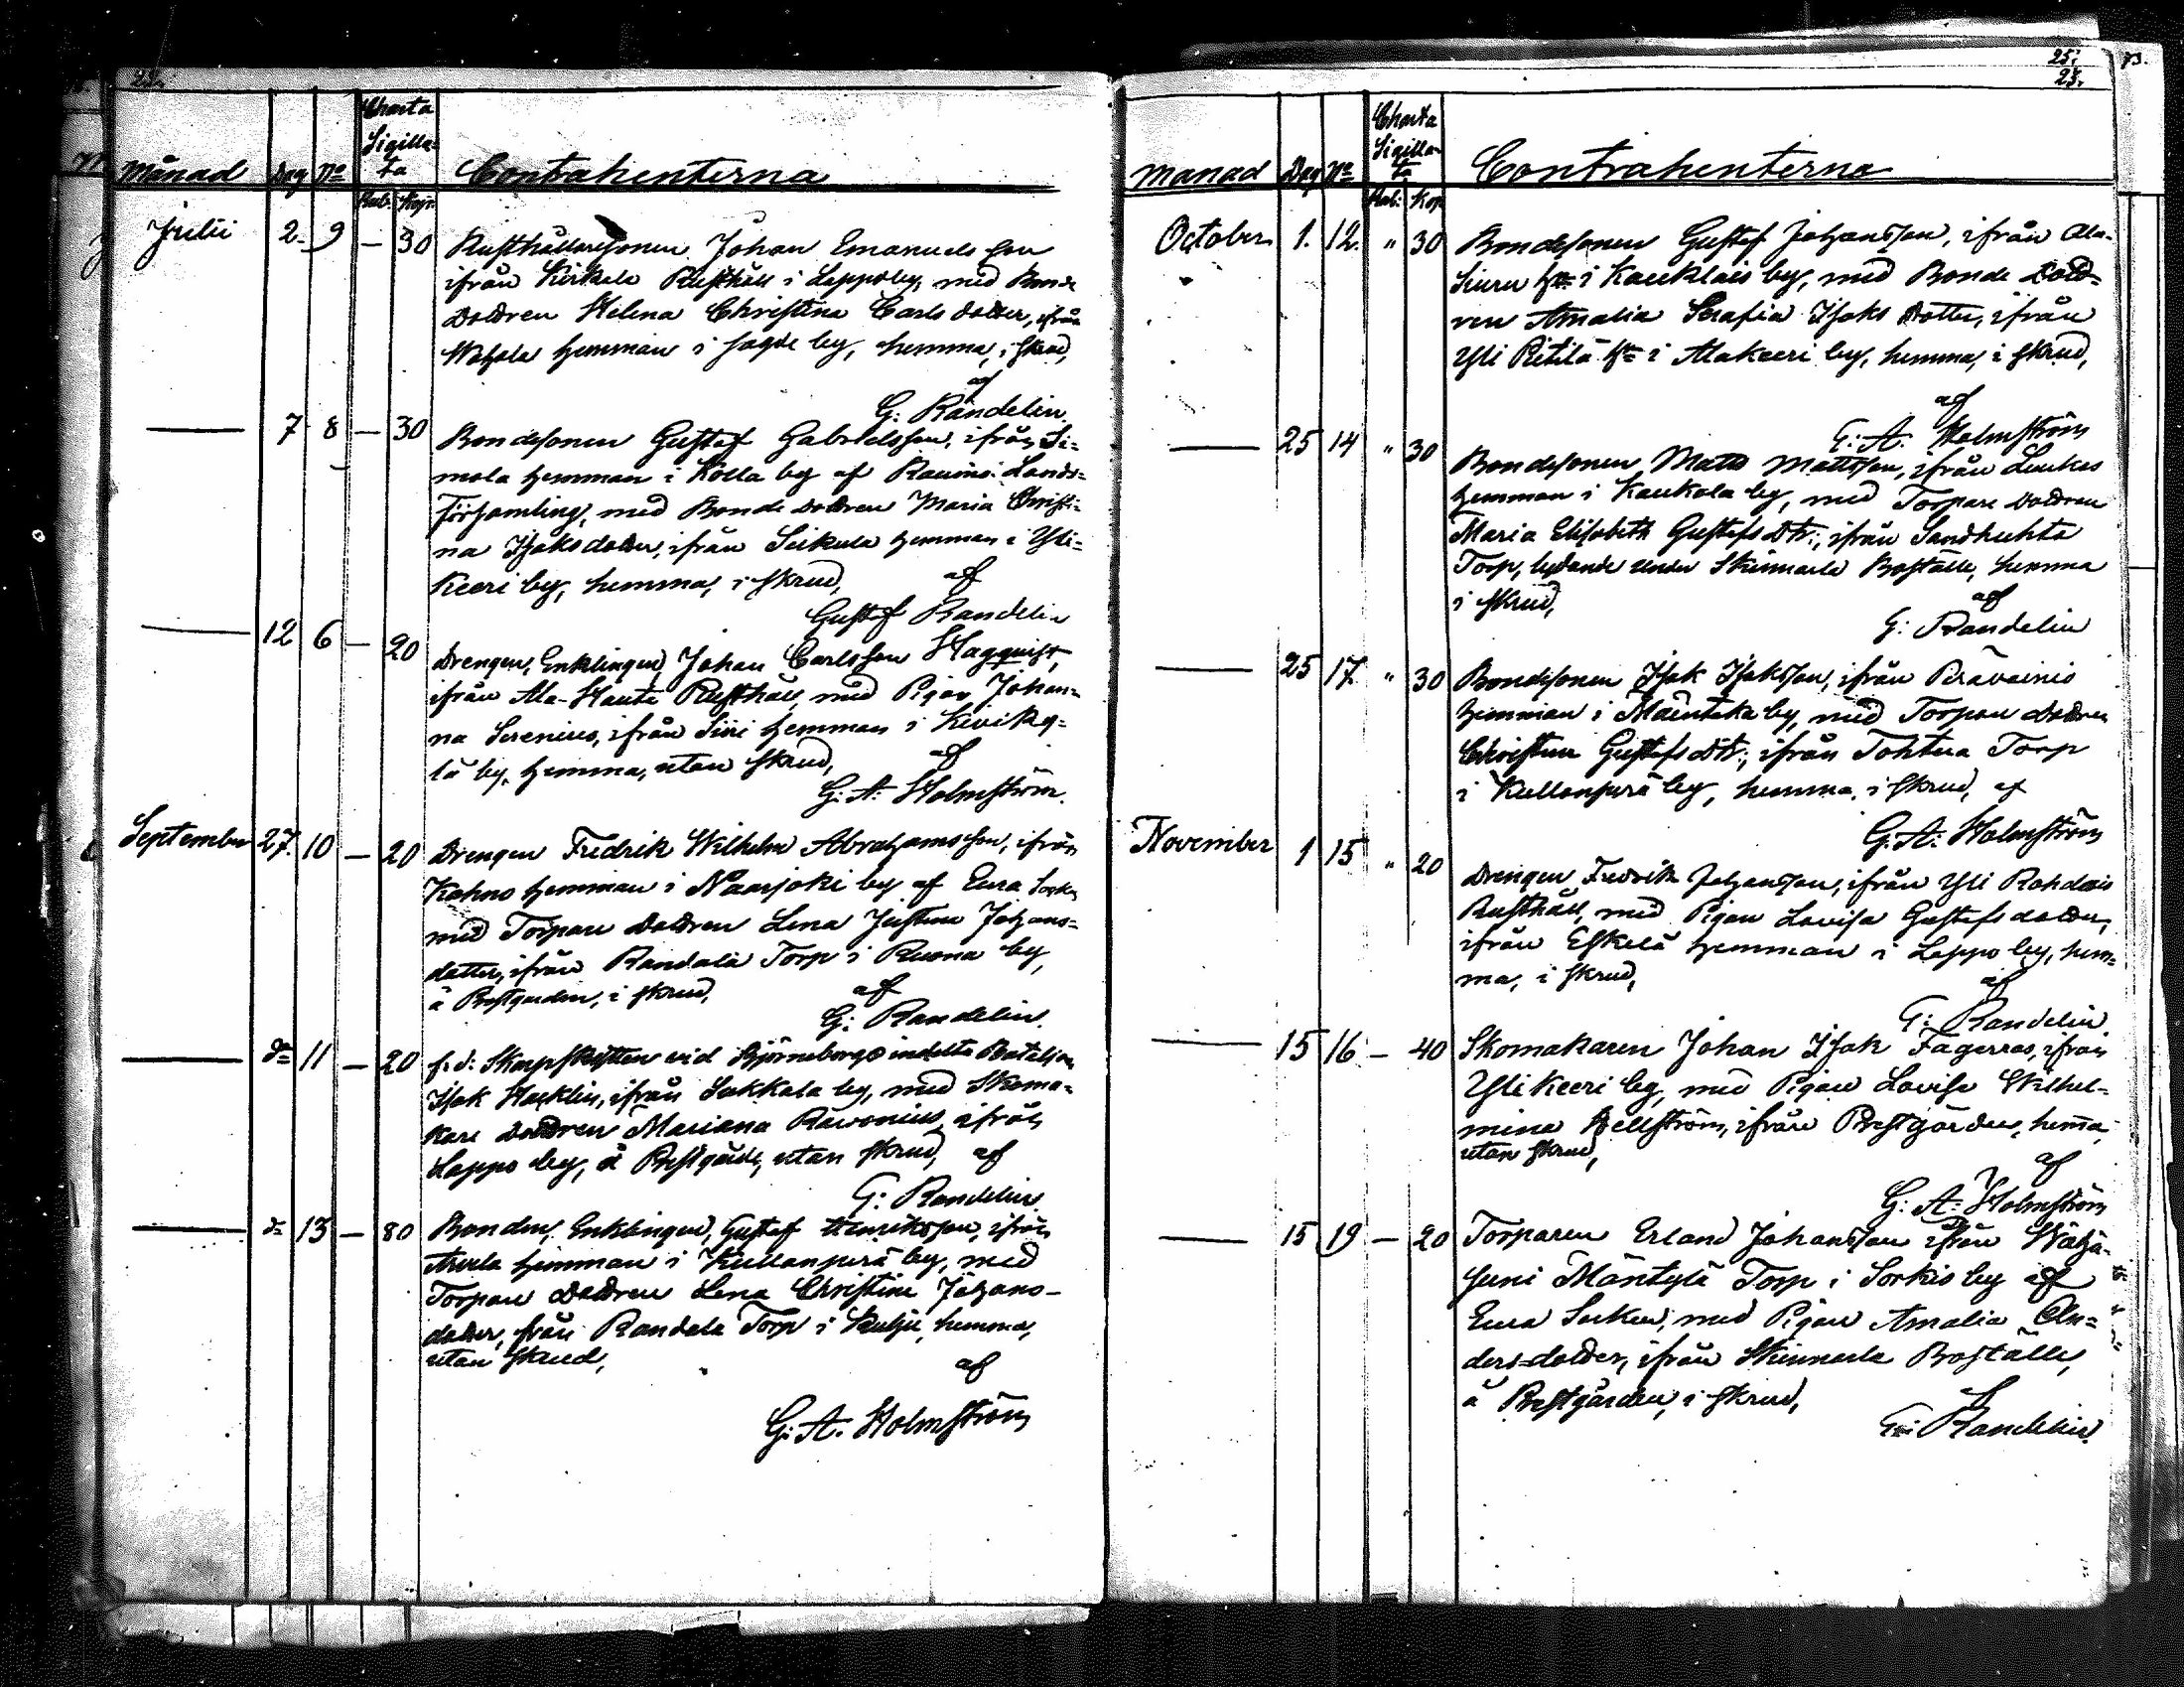 23.
Månad Dag No Charta Sigilla-ta Contrahenterna
Rub. Kop.
Julii 2. 9 — 30 Rusthållaresonen Johan Emanuelsson
ifrån Kirkola Rusthåll i Lappo by, med Bonde
Dottren Helena Christina Carls dotter, ifrån
Wahala hemman i Sagde by, hemma, i skrud,
af
G: Randelin
— 7 8 — 30 Bondesonen Gustaf Gabrielsson, ifrån Si-
mola hemman i Kolla by af Raumo Lands-
Församling, med Bonde dottren Maria Christi-
na Isaksdotter, ifrån Seikula hemman i Yli-
Keeri by, hemma, i skrud, af
Gustaf Randelin
— 12 6 — 20 Drengen, Enklingen, Johan Carlsson Hagquist,
ifrån Ala-Hanta Rusthåll, med Pigan Johan-
na Serenius, ifrån Siri hemman i Kiviky-
lä by, hemma, utan skrud, af
G: A: Holmström.
September 27. 10 — 20 Drengen Fredrik Wilhelm Abrahamsson, ifrån
Kahno hemman i Naarjoki by af Eura Socken
med Torpare Dottren Lena Justina Johans-
dotter, ifrån Randala Torp i Ruona by,
å Prestgården, i skrud, af
G: Randelin.
— do 11 — 20 f.d: Skarpskytten vid Björneborgs indelta Bataljon
Isak Hacklin, ifrån Sukkala by, med Skoma-
kare Dottren Mariana Rawonius, ifrån
Lappo by, å Prestgård, utan skrud, af
G: Randelin
— do 13 — 80 Bonden, Enklingen, Gustaf Henriksson, ifrån
hemman i Kullanperä by, med
Torpare Dottren Lena Christina Johans-
dotter, från Randala Torp i hemma,
utan skrud,
af
G: A. Holmström
25.
23.
Månad Dag No Charta Sigilla-ta Contrahenterna
Rub: Kop
October 1. 12. " 30 Bondesonen Gustaf Johansson, ifrån Ala-
hn i Kauklais by, med Bonde Dott-
ren Amalia Serafia Isaks Dotter, ifrån
Yli Pietilä hn i Alakeeri by, hemma, i skrud,
af
G: A. Holmström
— 25 14 " 30 Bondesonen Matts Mattsson, ifrån Laukas
hemman i Kaukola by, med Torpare Dottren
Maria Elisabeth Gustafs Dtr:, ifrån Sandhuhta
Torp, lydande under Skinnarla Boställe, hemma
i skrud, af
G: Randelin
— 25 17. " 30 Bondesonen Isak Isaksson, ifrån Peräveinio
hemman i by, med Torpare dottren
Christina Gustafs Dtr:, ifrån Tohtua Torp
i Kullanperä by, hemma, i skrud, af
G. A: Holmström
November 1 15 " 20 Drengen Fredrik Johansson, ifrån Yli Rohdais
Rusthåll, med Pigan Lovisa Gustafs dotter,
ifrån Eskelä hemman i Lappo by, hem-
ma, i skrud, af
G: Randelin
— 15 16 — 40 Skomakaren Johan Isak Fagerroos, ifrån
Ylikeeri by, med Pigan Lovisa Wilhel-
mina Hellström, ifrån Prestgården, hemma,
utan skrud,
af
G: A: Holmström
— 15 19 — 20 Torparen Erland Johansson ifrån Wähä-
Juni Mäntylä Torp i Sorkis by af
Eura Socken, med Pigan Amalia An-
ders-dotter, ifrån Skinnarla Boställe,
å Prestgården, i skrud, af
G: Randelin